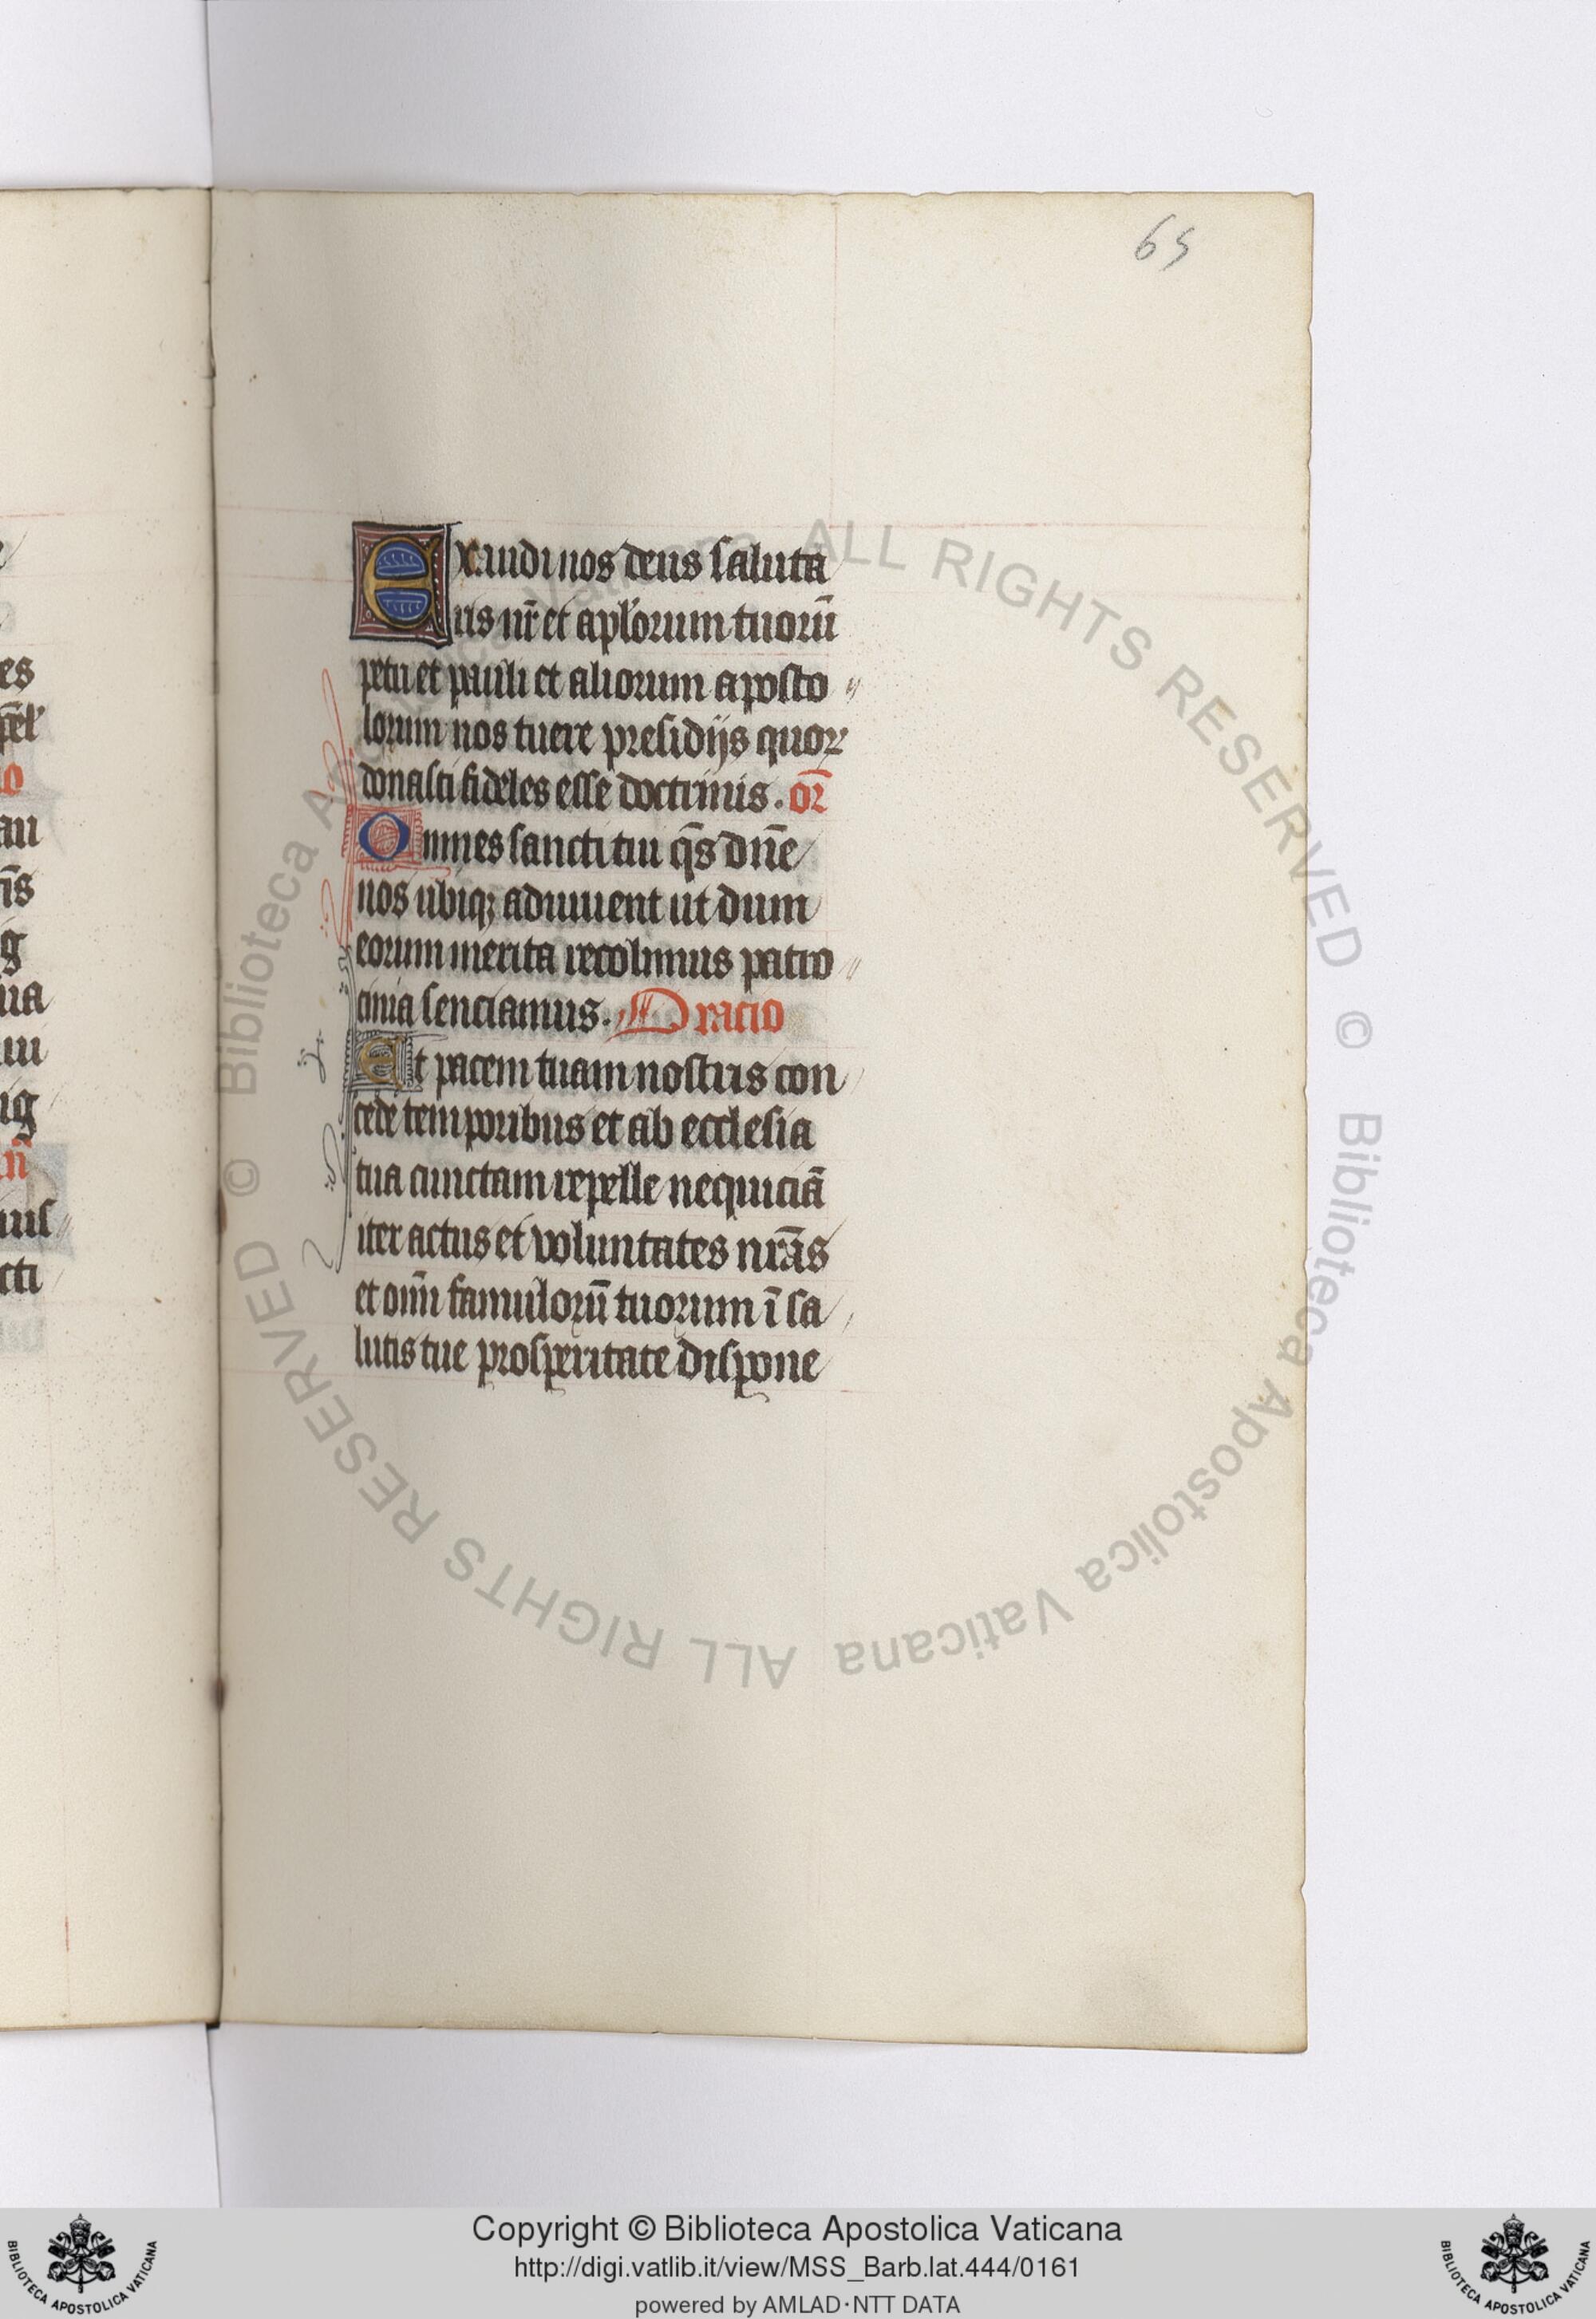 65
Exaudi nos deus saluta
ris nr̄ et apl'orum tuorū
petri et pauli et aliorum aposto
lorum nos tuere presidijs quoꝝ
donasti fideles esse doctrinis. or̄
Omnes sancti tui q̄s dn̄e
nos ubiqꝫ adiuuent ut dum
eorum merita recolimus patro
cinia senciamus. Oracio
Et pacem tuam nostris con
cede temporibus et ab ecclesia
tua cunctam repelle nequiciā
iter actus et voluntates nr̄as
et om̄i famulorū tuorum ī sa
lutis tue prosperitate dispone
© Biblioteca Apostolica Vaticana ALL RIGHTS RESERVED © Biblioteca Apostolica Vaticana ALL RIGHTS RESERVED
Copyright © Biblioteca Apostolica Vaticana
http://digi.vatlib.it/view/MSS_Barb.lat.444/0161
powered by AMLAD·NTT DATA
BIBLIOTECA APOSTOLICA VATICANA
BIBLIOTECA APOSTOLICA VATICANA